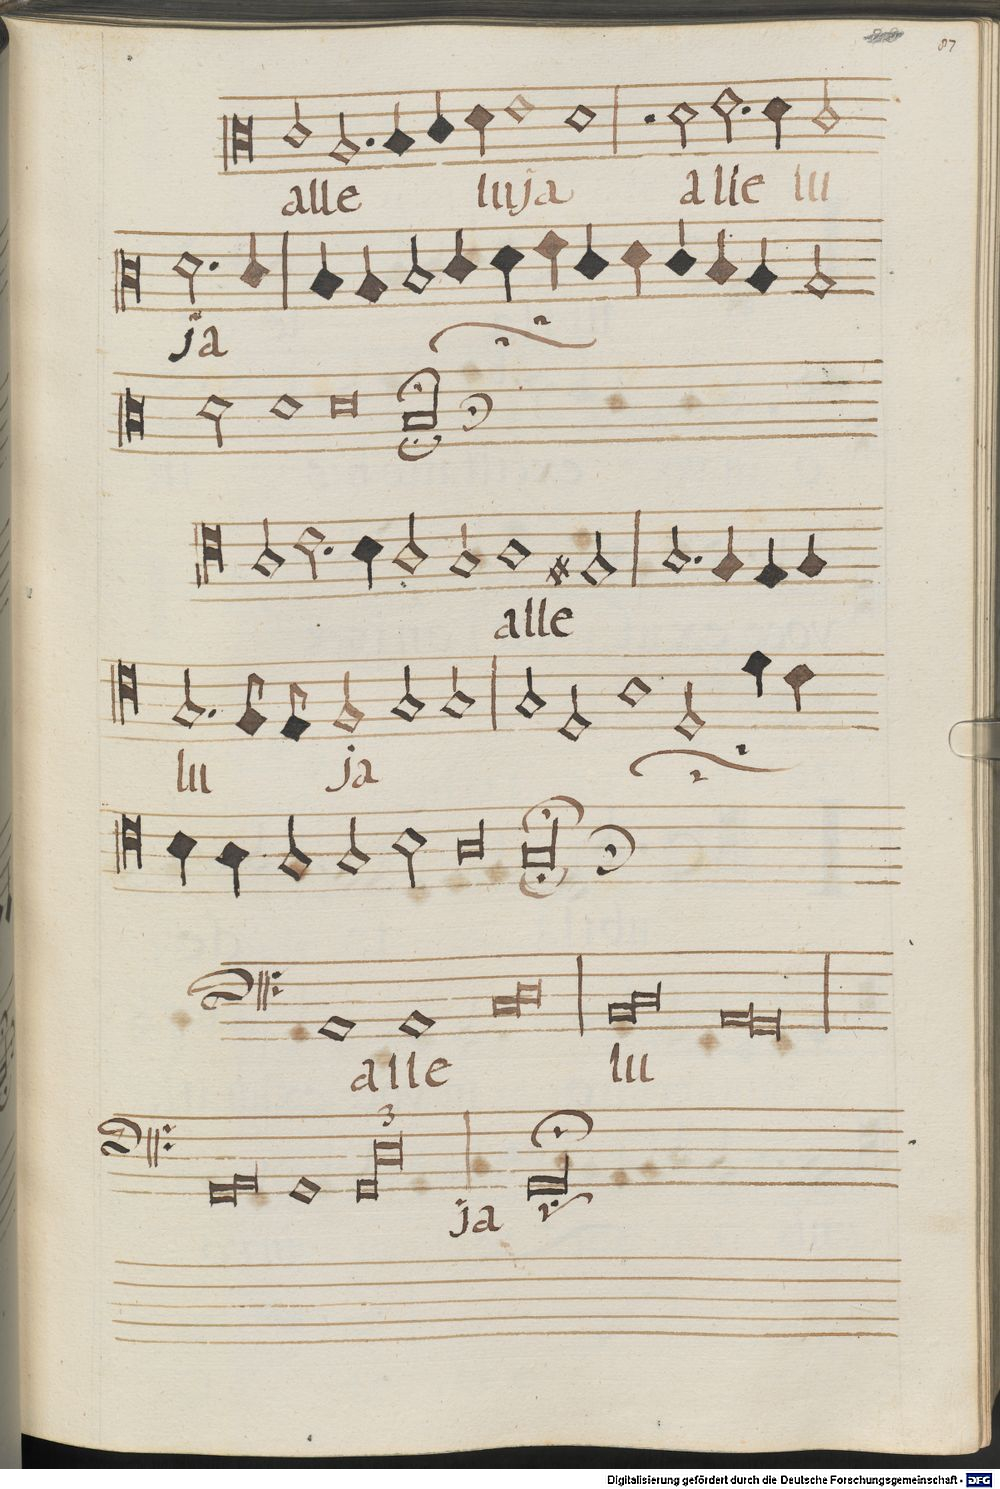 87
alle luja alle lu
ja
alle
lu ja
alle lu
3
ja
Digitalisierung gefördert durch die Deutsche Forschungsgemeinschaft - DFG